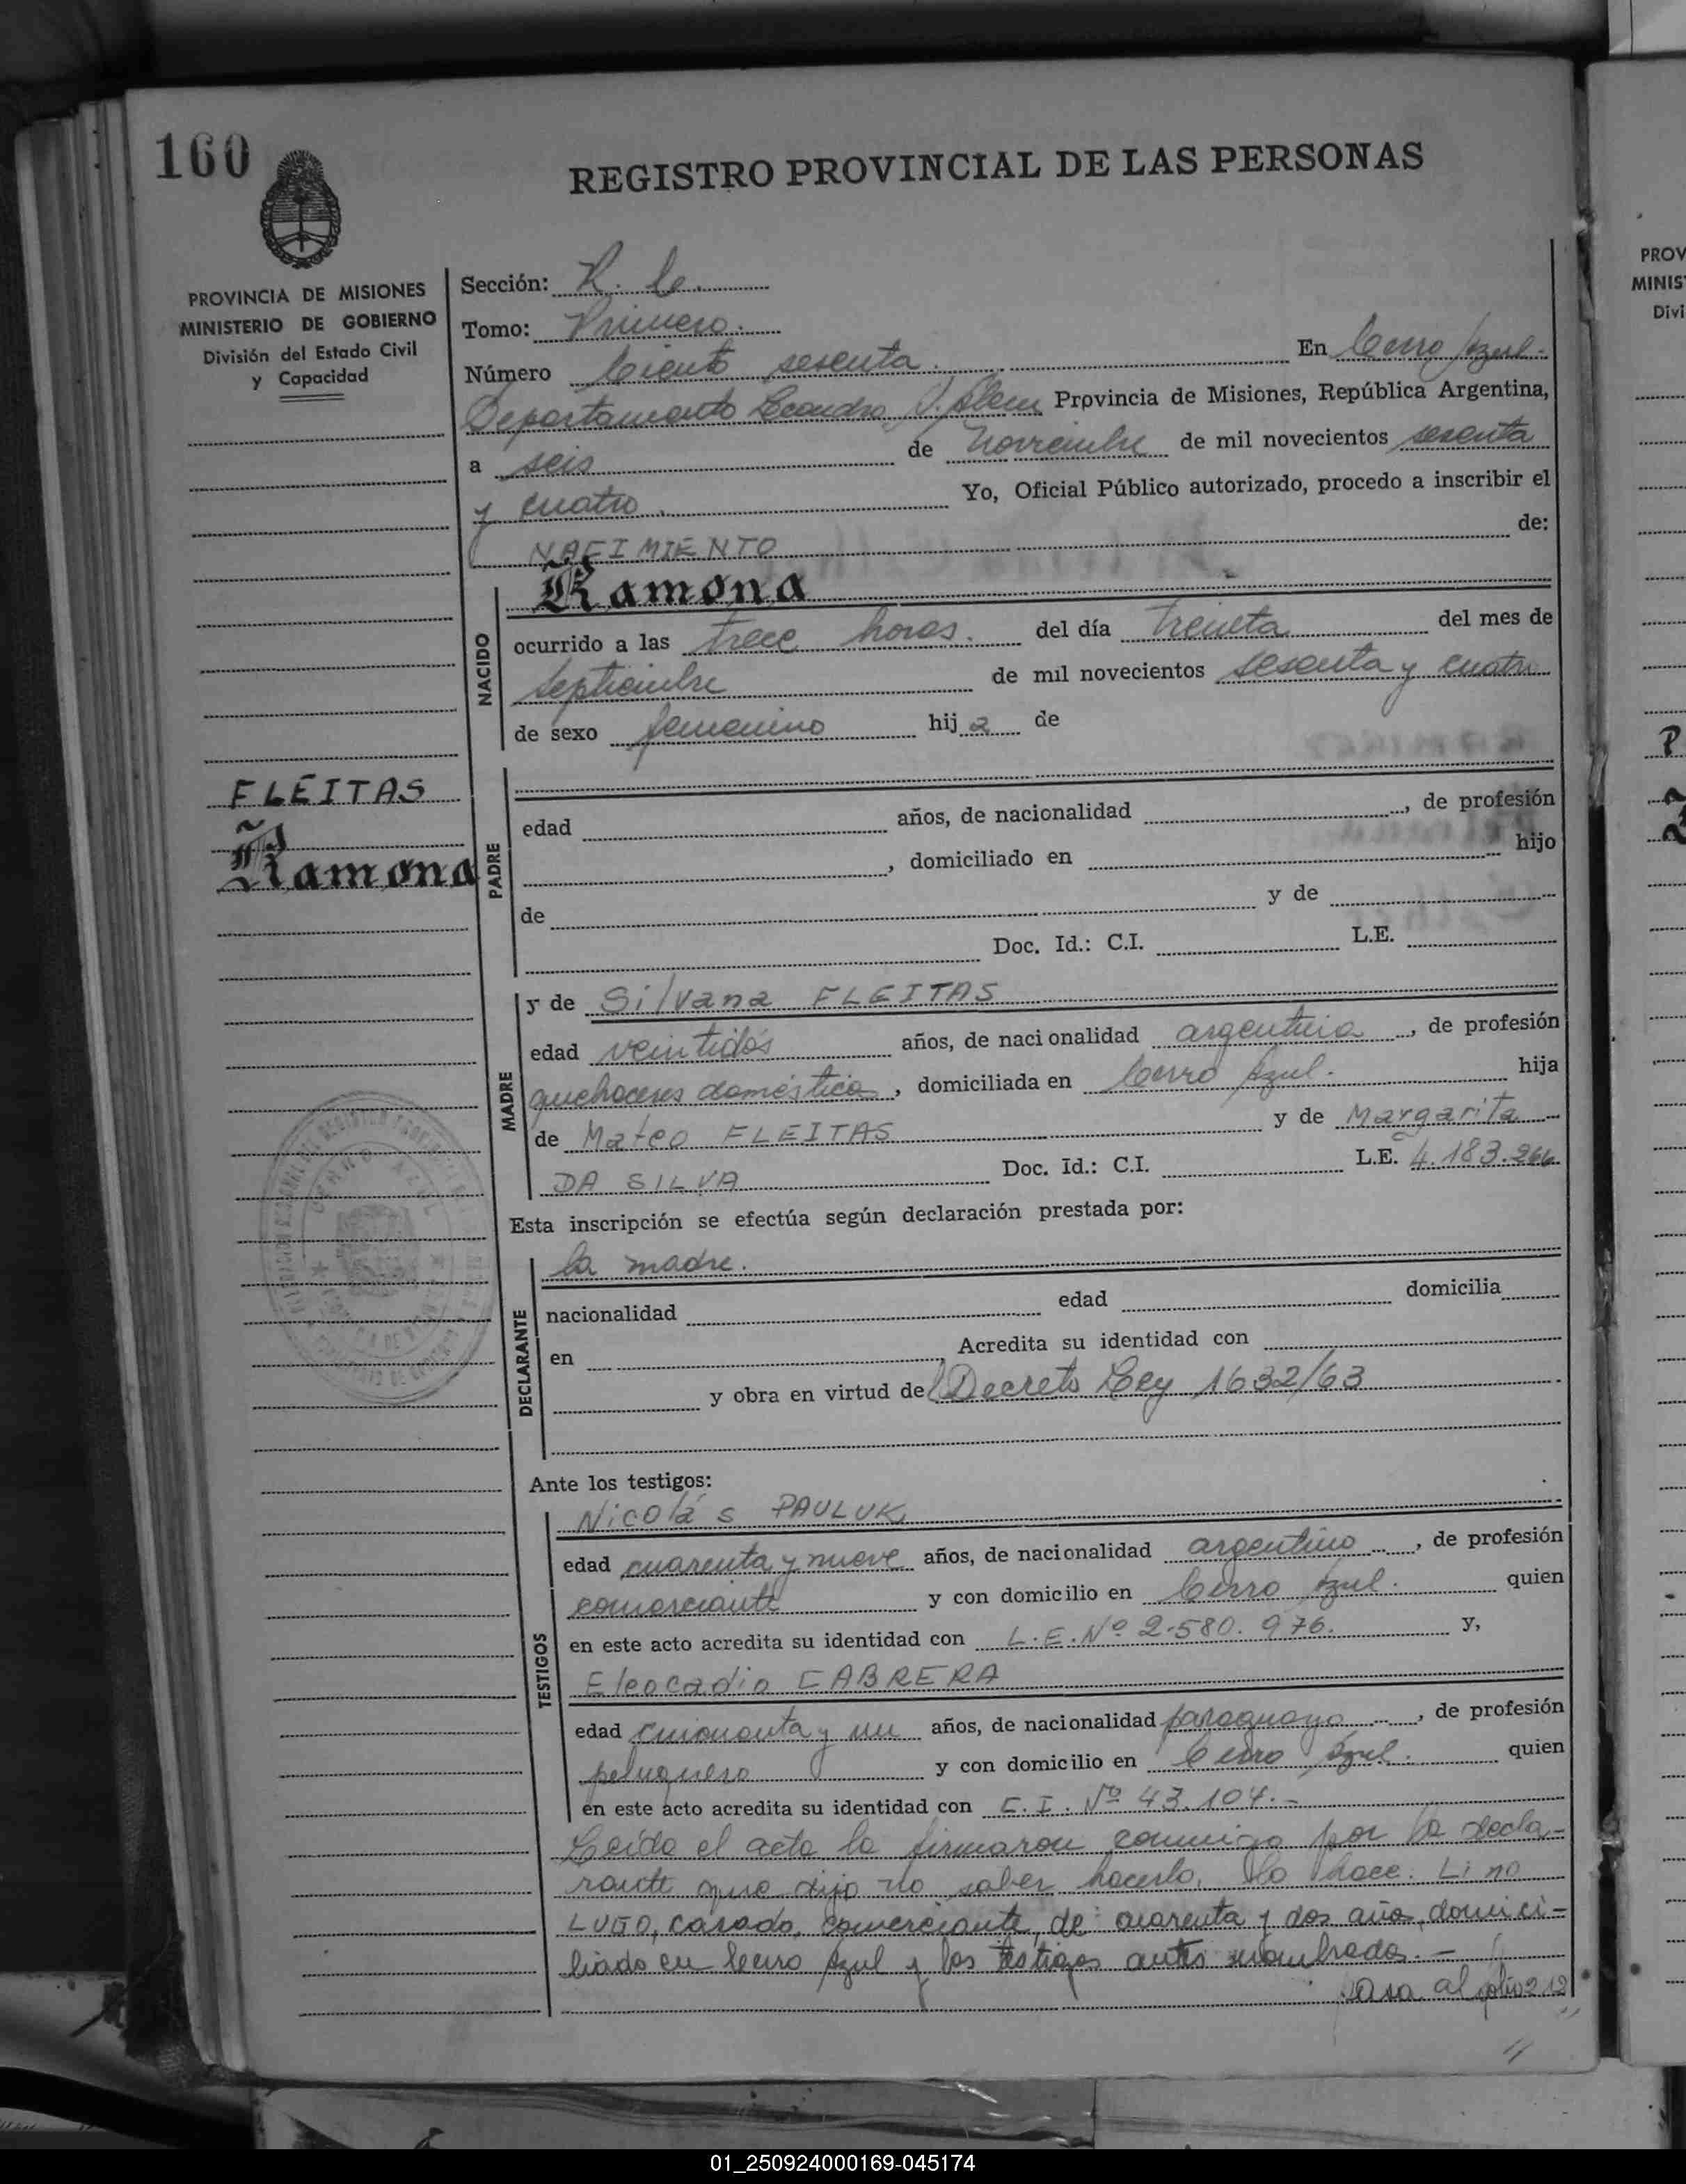 160
REGISTRO PROVINCIAL DE LAS PERSONAS
PROVINCIA DE MISIONES
MINISTERIO DE GOBIERNO
División del Estado Civil
y Capacidad
Sección:
Tomo: Primero.
Número Ciento sesenta. En Cerro Azul.
Departamento Leandro N. Alem Provincia de Misiones, República Argentina,
a seis de Noviembre de mil novecientos sesenta
y cuatro. Yo, Oficial Público autorizado, procedo a inscribir el
NACIMIENTO de:
NACIDO
Ramona
ocurrido a las trece horas. del día treinta del mes de
septiembre de mil novecientos sesenta y cuatro
de sexo femenino hija de
FLEITAS
Ramona
PADRE
edad años, de nacionalidad , de profesión
, domiciliado en hijo
de y de
Doc. Id.: C.I. L.E.
MADRE
y de Silvana FLEITAS
edad veintidós años, de nacionalidad argentina , de profesión
quehaceres domésticos , domiciliada en Cerro Azul. hija
de Mateo FLEITAS y de Margarita
DA SILVA Doc. Id.: C.I. L.E. 4.183.266
Esta inscripción se efectúa según declaración prestada por:
DECLARANTE
la madre.
nacionalidad edad domicilia
en Acredita su identidad con
y obra en virtud del Decreto Ley 1632/63
Ante los testigos:
TESTIGOS
Nicolás PAULUK
edad cuarenta y nueve años, de nacionalidad argentino , de profesión
comerciante y con domicilio en Cerro Azul. quien
en este acto acredita su identidad con L.E. Nº 2.580.976. y,
Eleocadio CABRERA
edad cincuenta y un años, de nacionalidad paraguayo , de profesión
peluquero y con domicilio en Cerro Azul. quien
en este acto acredita su identidad con C.I. Nº 43.104.-
Leída el acta la firmaron conmigo por la decla-
rante que dijo no saber hacerlo, lo hace: Lino
LUGO, casado, comerciante, de cuarenta y dos años, domici-
liado en Cerro Azul y los testigos antes nombrados.-
Pasa al folio 212
PROV
MINIS
Divi
01_250924000169-045174